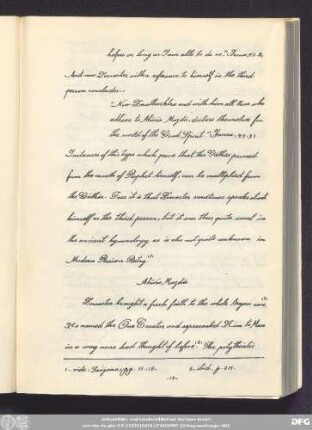 helper as long as I am able to do so" Jasna,
And now Zoroaster with a reference to himself in the third
person concludes:-
"Now Zarathushtra and with him all those who
adhere to Ahura Mazda, declare themselves for
the world of the Good Spirit" Jasna,
Instances of this type which prove that the Gathas proceed
from the mouth of Prophet himself, can be multiplied from
the Gathas. True it is that Zoroaster sometimes speaks about
himself as the third person, but it was then quite usual in
the ancient hymnology as is also not quite unknown in
Modern Persian
Ahura Mazda
Zoroaster brought a fresh faith to the whole Aryan race.
He named the One Creator and represented Him to Man
in a way none had thought of before. The polytheistic
1- vide: pp. 11-12. 2- ibid. p. 211.